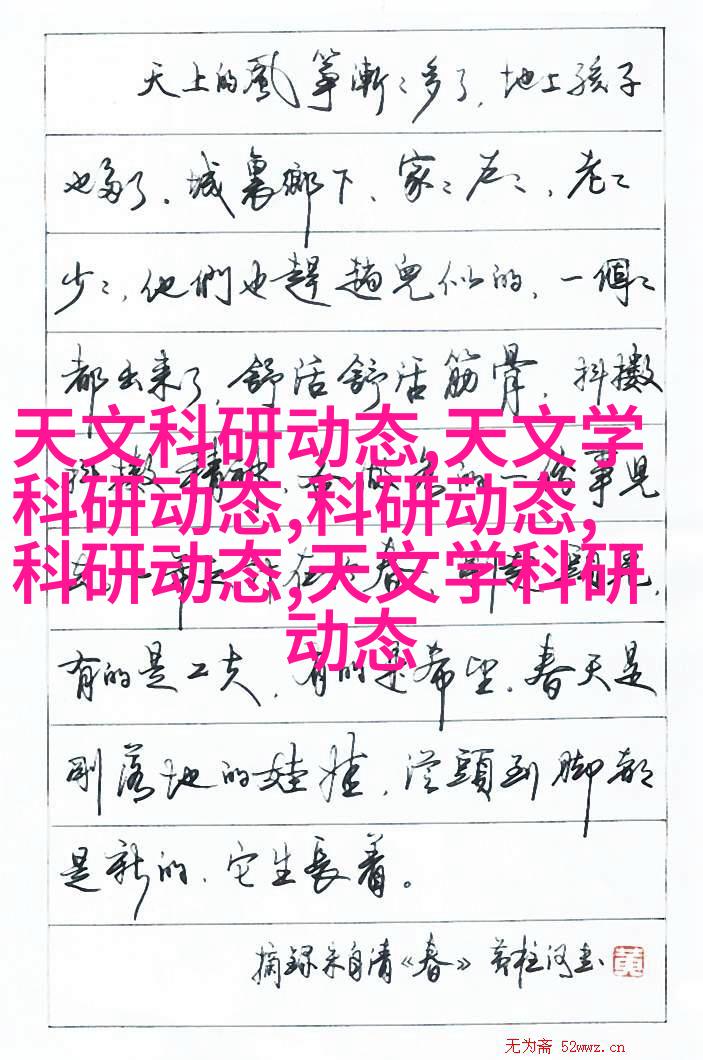 天上的風箏漸〻多了，地上孩子
也多了。城裏鄉下，家〻戶〻，老〻
少〻，他們也趕趟兒似的，一個〻
都出来了。舒活舒活筋骨，抖擻
天文科研动态,天文学
科研动态,科研动态,
科研动态,天文学科研
动态
有的是工夫，有的是希望。春天是
刚落地的娃娃，從頭到脚都
是新的，它生長着。
摘録朱自清《春》 黄柱河书
黄
无为斋 52wwz.cn